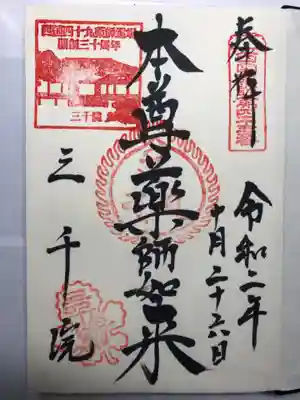 奉拝
令和二年
十月二十六日
本尊薬師如来
三千院
西国四十九薬師霊場
開創三十周年
三千院